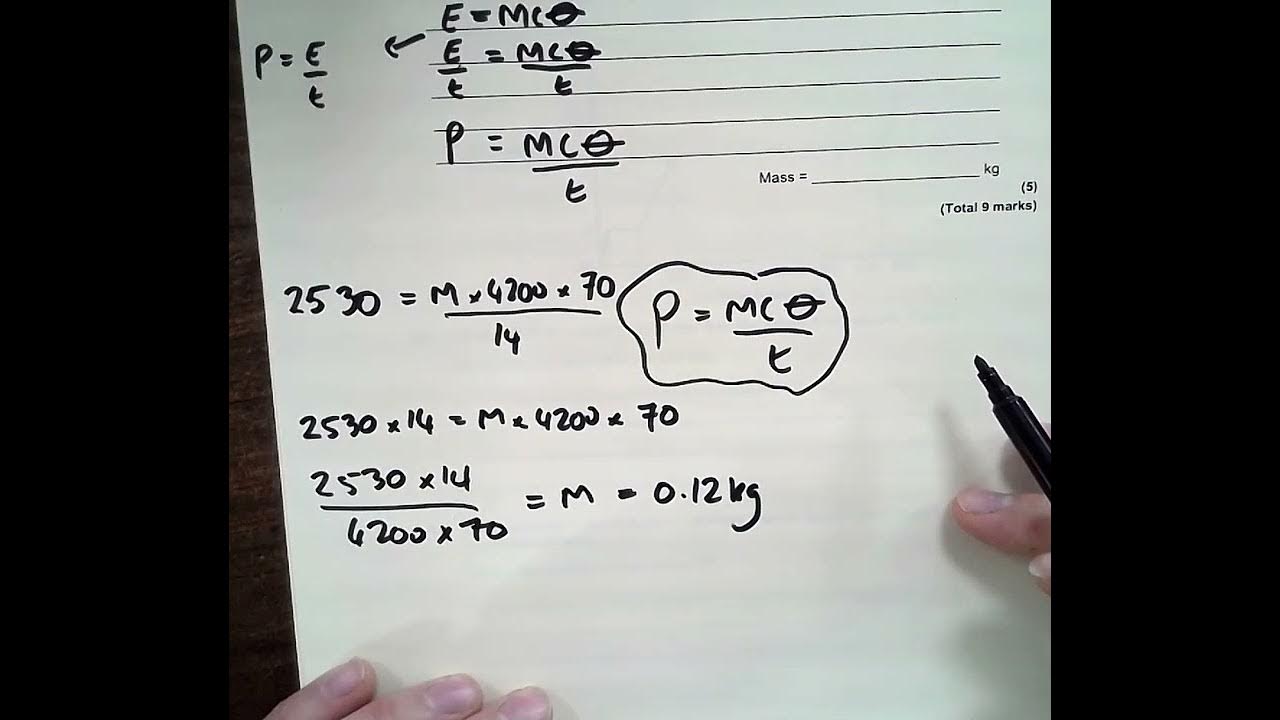 E = mcθ
P = E/t ← E/t = mcθ/t
P = mcθ/t
Mass = ____________ kg
(5)
(Total 9 marks)
2530 = m × 4200 × 70 / 14
P = mcθ/t
2530 × 14 = m × 4200 × 70
2530 × 14 / 4200 × 70 = m = 0.12kg